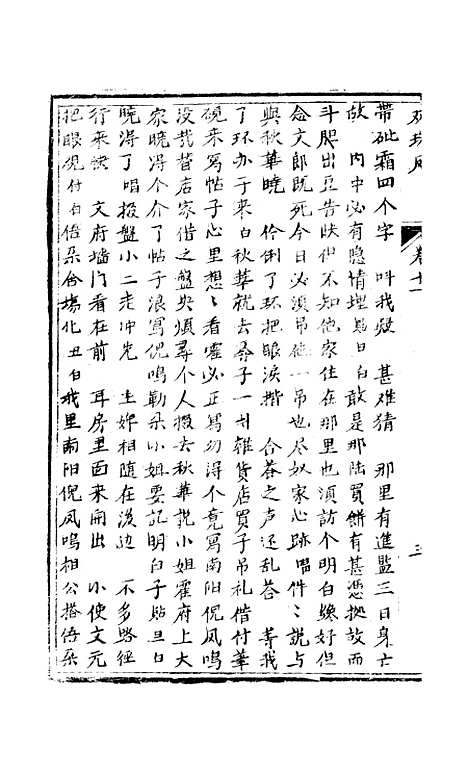 双珠凤
卷十一
三
带砒霜四个字 叫我疑 甚难猜 那里有進監三日身亡
故 内中必有隐情埋 旦白敢是那陆買餅有甚憑據故而
斗胆出互告 但不知他家住在那里也須訪个明白纔好但
念文郎既死今日必須吊他一吊也尽奴家心跡 唱件〻説与
與秋華曉 伶俐丫环把眼淚揩 合荅之声还乱荅 等我
了环办于来 白秋華就去 子一寸雜貨店買子吊礼借付筆
硯来寫帖子心里想〻看霍必正寫勿得个竟寫南阳倪凤鳴
没哉替店家借之盤央煩尋个人掇去秋華説小姐霍府上大
家曉得个介了帖子浪寫倪鳴勒朶小姐要記明白子 旦白
曉得了 唱掇盤小二走冲先 主婢相随在後边 不多路徑
行来快 文府墙门看在前 耳房里面来開出 小使文元
把眼覌 付白俉朶舍塲化 丑白我里南阳倪凤鳴相公搭俉朶